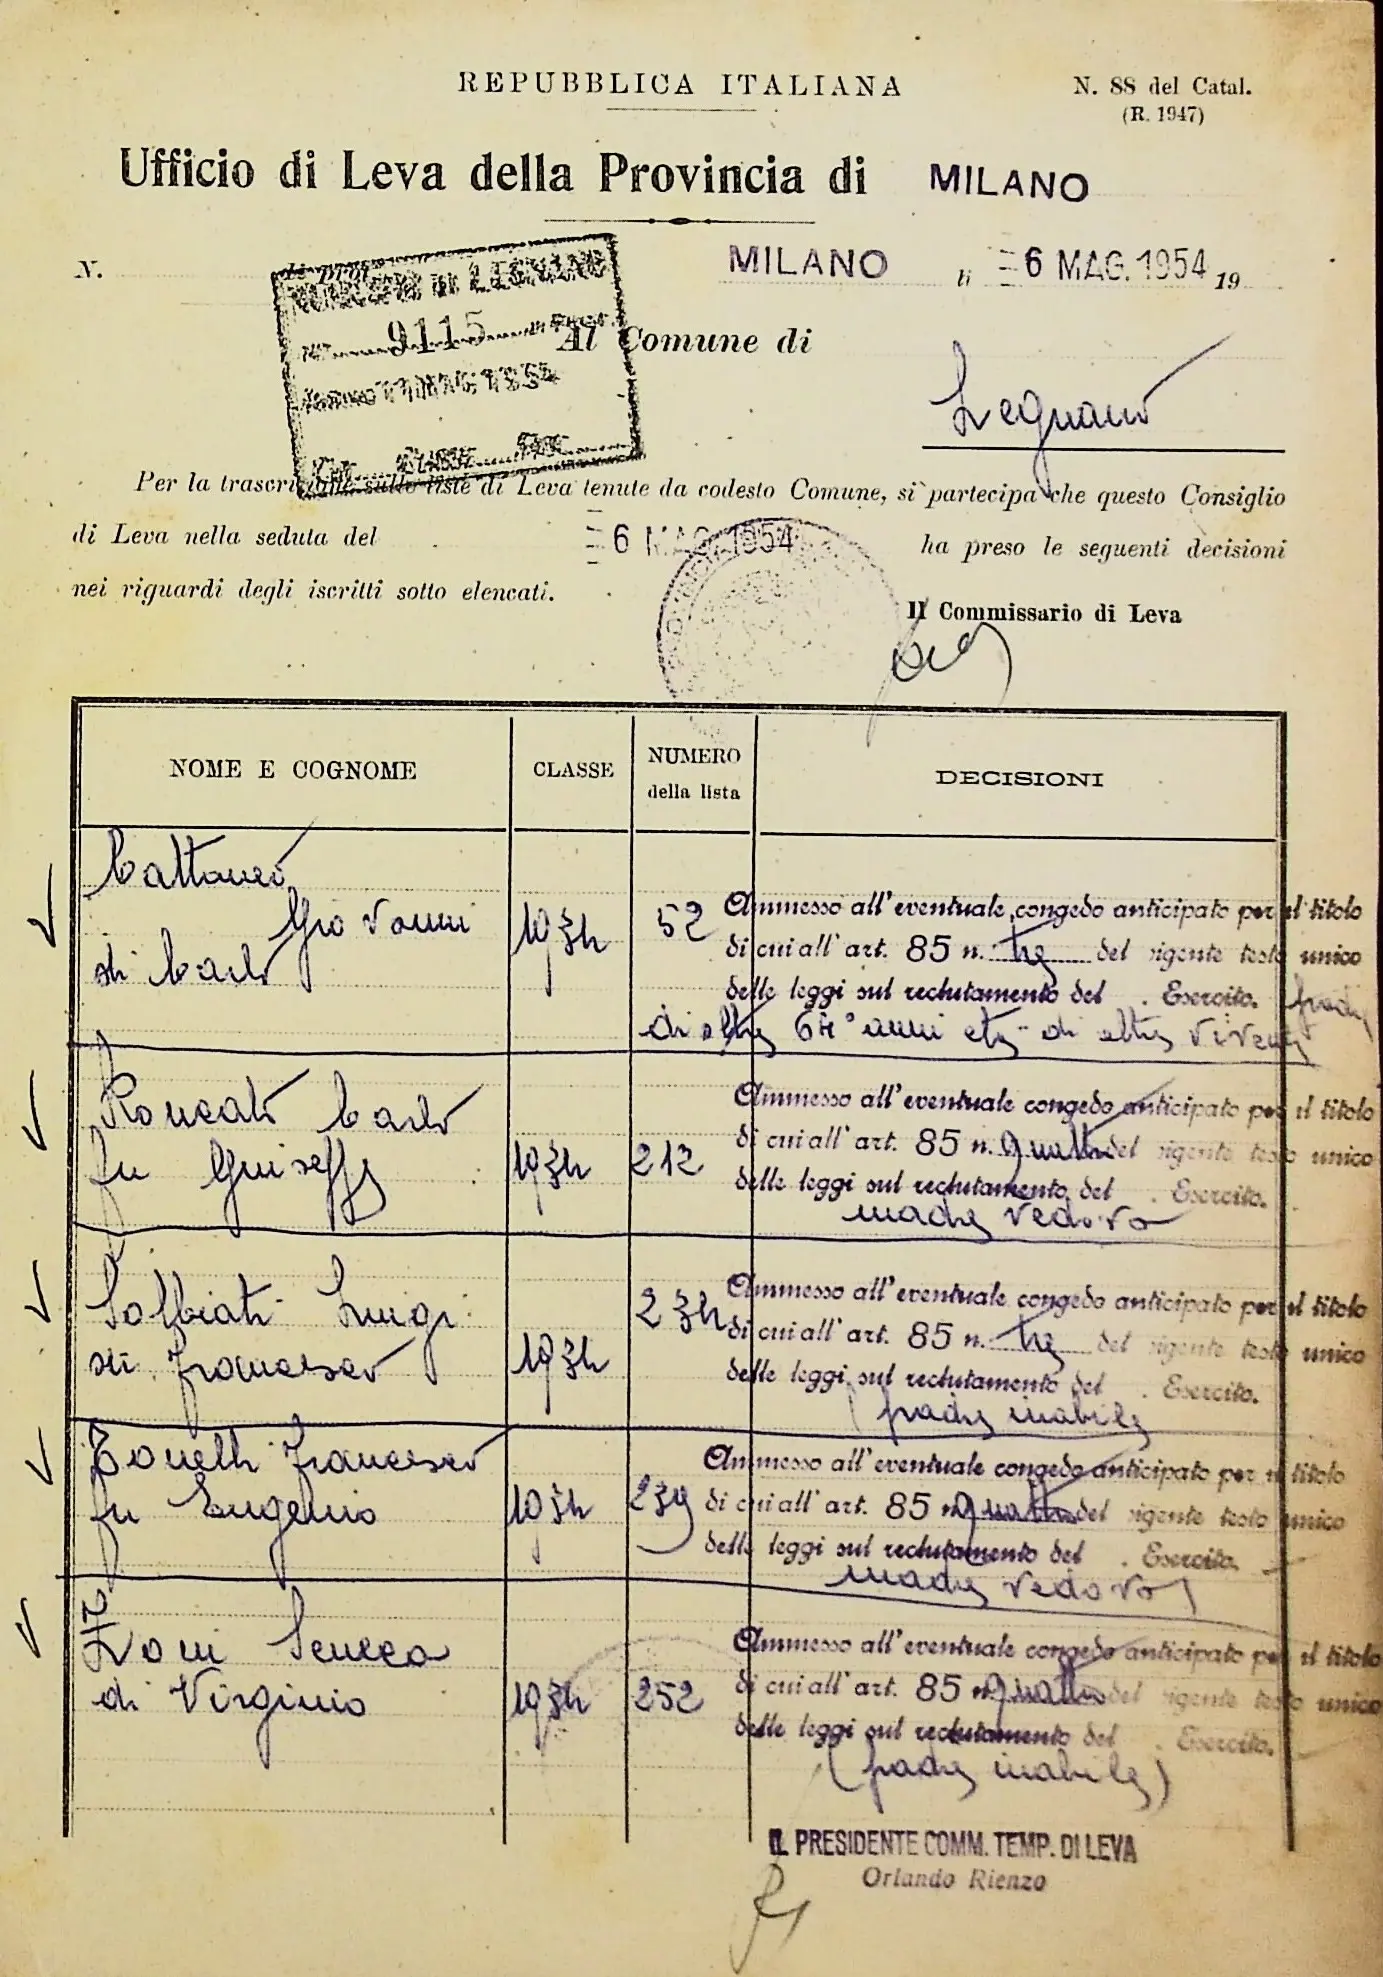 REPUBBLICA ITALIANA
N. 88 del Catal.
(R. 1947)
Ufficio di Leva della Provincia di MILANO
N. di prot.
MILANO li 6 MAG. 1954 19
COMUNE DI LEGNANO
N° 9115 di Prot.
Al Comune di
Legnano
Per la trascrizione sulle liste di Leva tenute da codesto Comune, si partecipa che questo Consiglio
di Leva nella seduta del 6 MAG. 1954 ha preso le seguenti decisioni
nei riguardi degli iscritti sotto elencati.
Il Commissario di Leva
NOME E COGNOME CLASSE NUMERO della lista DECISIONI
Cattaneo
Giovanni 1934 52 Ammesso all'eventuale congedo anticipato per il titolo
di Carlo di cui all'art. 85 n. tre del vigente testo unico
delle leggi sul reclutamento del Esercito. padre
di oltre 64° anni età di altri viventi
Roncato Carlo Ammesso all'eventuale congedo anticipato per il titolo
fu Giuseppe 1934 212 di cui all'art. 85 n. quattro del vigente testo unico
delle leggi sul reclutamento del Esercito.
madre vedova
Solbiati Luigi 234 Ammesso all'eventuale congedo anticipato per il titolo
di Francesco 1934 di cui all'art. 85 n. tre del vigente testo unico
delle leggi sul reclutamento del Esercito.
(padre inabile
Tonelli Francesco Ammesso all'eventuale congedo anticipato per il titolo
fu Eugenio 1934 239 di cui all'art. 85 n. quattro del vigente testo unico
delle leggi sul reclutamento del Esercito.
madre vedova)
Zoni Seneca Ammesso all'eventuale congedo anticipato per il titolo
di Virginio 1934 252 di cui all'art. 85 n. quattro del vigente testo unico
delle leggi sul reclutamento del Esercito.
(padre inabile)
IL PRESIDENTE COMM. TEMP. DI LEVA
Orlando Rienzo